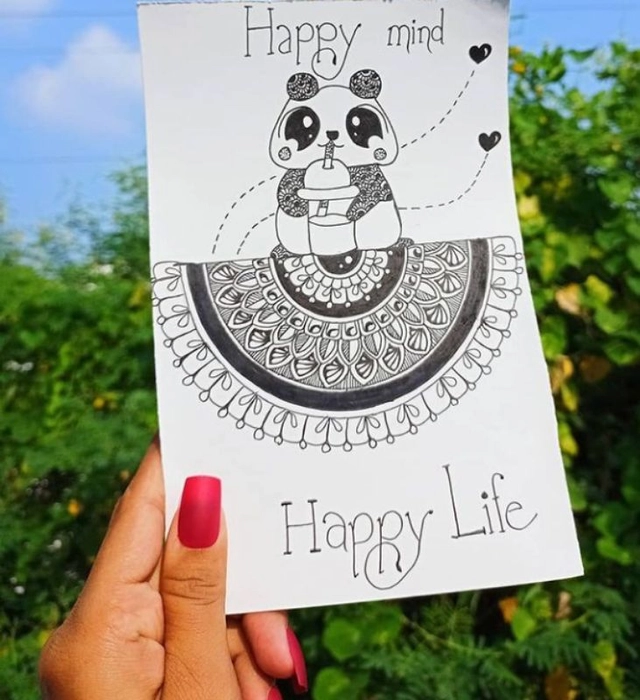 Happy mind
Happy Life